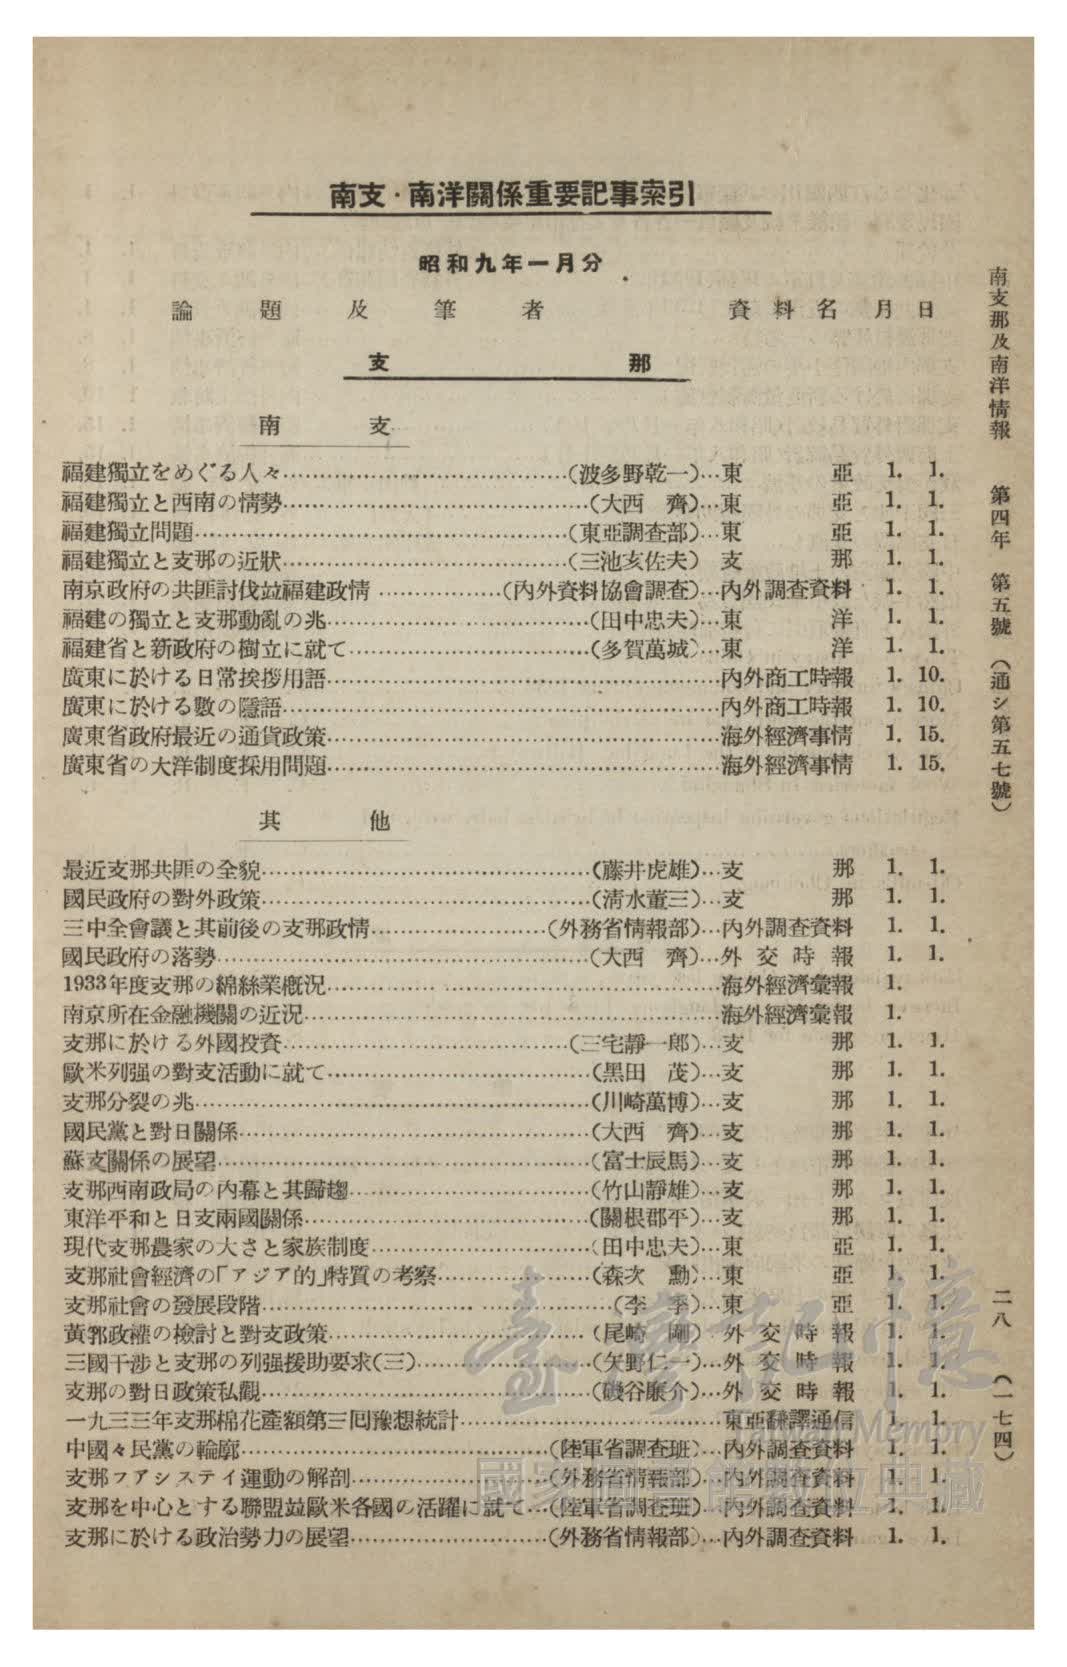 南支・南洋關係重要記事索引
昭和九年一月分
論題及筆者 資料名 月日
支那
南支
福建獨立をめぐる人々……(波多野乾一)…東亞 1. 1.
福建獨立と西南の情勢……(大西齊)…東亞 1. 1.
福建獨立問題……(東亞調查部)…東亞 1. 1.
福建獨立と支那の近狀……(三池亥佐夫) 支那 1. 1.
南京政府の共匪討伐竝福建政情……(內外資料協會調查)…內外調查資料 1. 1.
福建の獨立と支那動亂の兆……(田中忠夫)…東洋 1. 1.
福建省と新政府の樹立に就て……(多賀萬城)…東洋 1. 1.
廣東に於ける日常挨拶用語……內外商工時報 1. 10.
廣東に於ける數の隱語……內外商工時報 1. 10.
廣東省政府最近の通貨政策……海外經濟事情 1. 15.
廣東省の大洋制度採用問題……海外經濟事情 1. 15.
其他
最近支那共匪の全貌……(藤井虎雄)…支那 1. 1.
國民政府の對外政策……(淸水董三)…支那 1. 1.
三中全會議と其前後の支那政情……(外務省情報部)…內外調查資料 1. 1.
國民政府の落勢……(大西齊)…外交時報 1. 1.
1933年度支那の綿絲業槪況……海外經濟彙報 1.
南京所在金融機關の近況……海外經濟彙報 1.
支那に於ける外國投資……(三宅靜一郞)…支那 1. 1.
歐米列强の對支活動に就て……(黑田茂)…支那 1. 1.
支那分裂の兆……(川崎萬博)…支那 1. 1.
國民黨と對日關係……(大西齊)…支那 1. 1.
蘇支關係の展望……(富士辰馬)…支那 1. 1.
支那西南政局の內幕と其歸趨……(竹山靜雄)…支那 1. 1.
東洋平和と日支兩國關係……(關根郡平)…支那 1. 1.
現代支那農家の大さと家族制度……(田中忠夫)…東亞 1. 1.
支那社會經濟の「アジア的」特質の考察……(森次勳)…東亞 1. 1.
支那社會の發展段階……(李季)…東亞 1. 1.
黃郛政權の檢討と對支政策……(尾崎剛) 外交時報 1. 1.
三國干涉と支那の列强援助要求(三)……(矢野仁一)…外交時報 1. 1.
支那の對日政策私觀……(磯谷廉介)…外交時報 1. 1.
一九三三年支那棉花產額第三回豫想統計……東亞飜譯通信 1. 1.
中國々民黨の輪廓……(陸軍省調查班)…內外調查資料 1. 1.
支那フアシステイ運動の解剖……(外務省情報部)…內外調查資料 1. 1.
支那を中心とする聯盟竝歐米各國の活躍に就て…(陸軍省調查班)…內外調查資料 1. 1.
支那に於ける政治勢力の展望……(外務省情報部)…內外調查資料 1. 1.
南支那及南洋情報 第四年 第五號 (通シ第五七號)
二八 (一七四)
臺灣記憶
Taiwan Memory
國家圖書館數位典藏